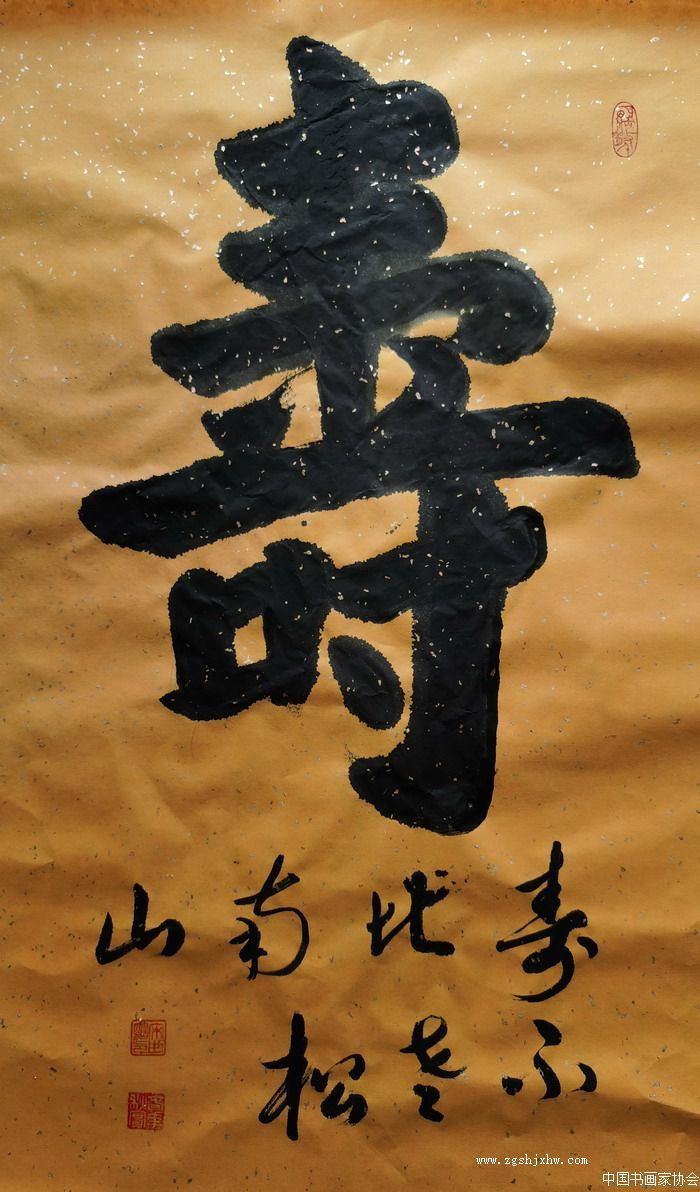 壽
寿比南山
不老松
www.zgshjxhw.com
中国书画家协会